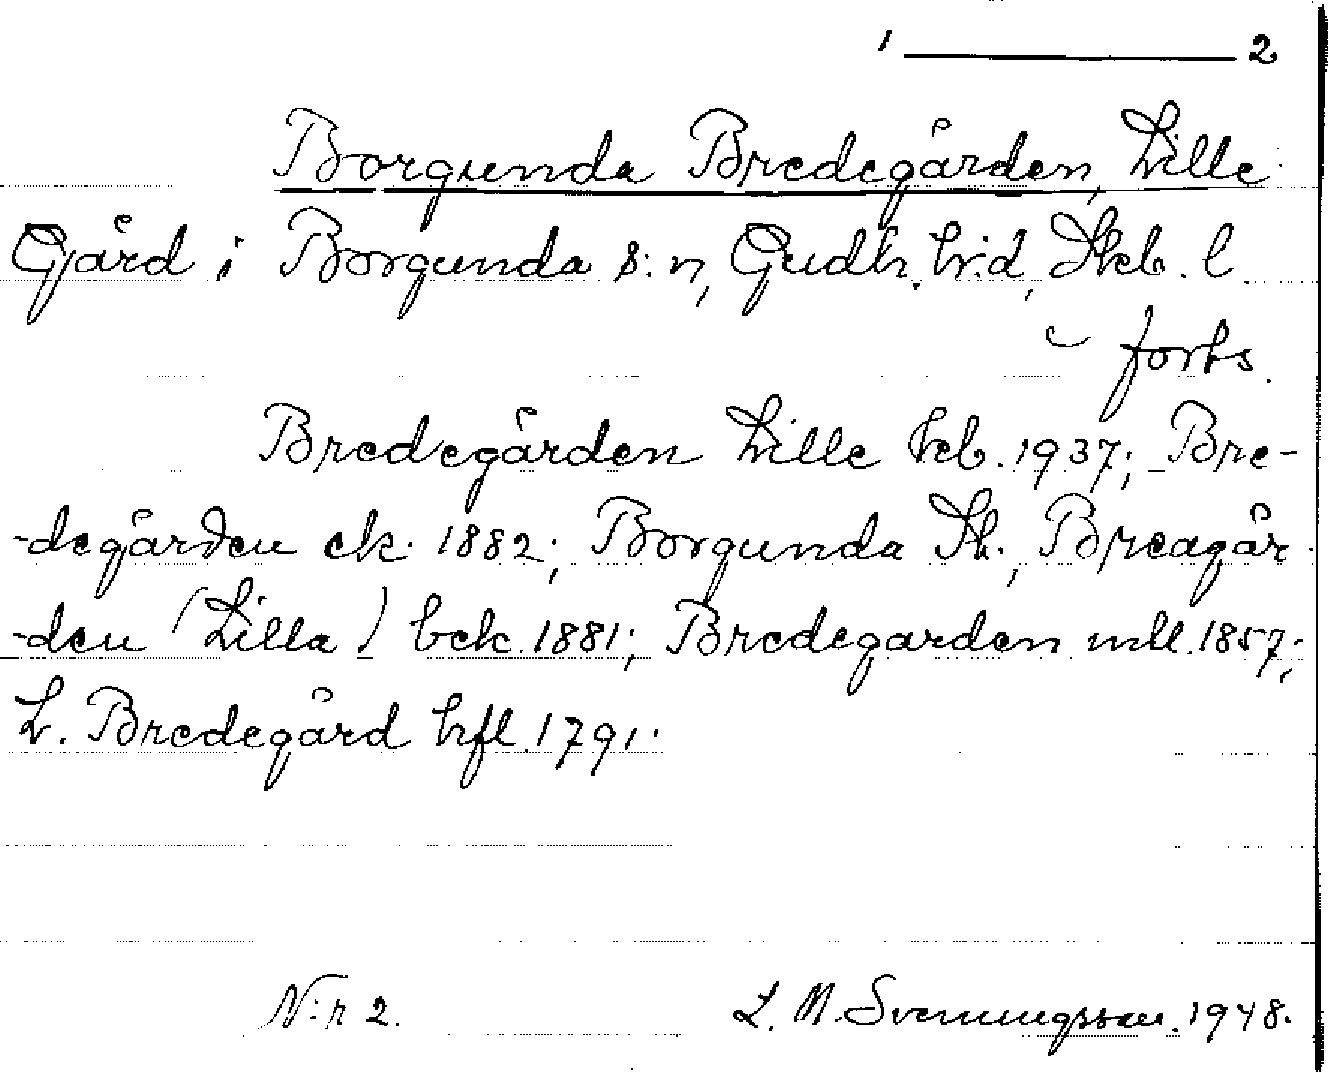 1 ——— 2
Borgunda Bredegården, Lille
Gård i Borgunda s:n, Gudh. hrd, Skb. l.
forts.
Bredegården Lille kcb. 1937; Bre-
-degården ek. 1882; Borgunda Sk., Breagår
-den (Lilla) bek. 1881; Bredegarden mll. 1857;
L. Bredegård hfl. 1791.
N:r 2. L. M. Svenungsson. 1948.